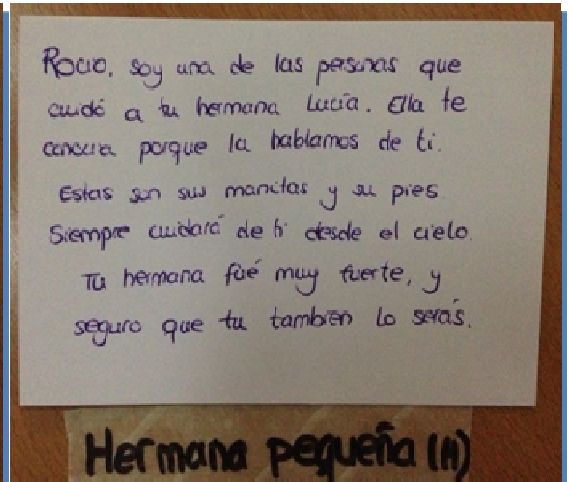 Rocio, soy una de las personas que
cuidó a tu hermana Lucía. Ella te
conocía porque la hablamos de ti.
Estas son sus manitas y su pies.
Siempre cuidará de ti desde el cielo.
Tu hermana fué muy fuerte, y
seguro que tu también lo serás.
Hermana pequeña (11)